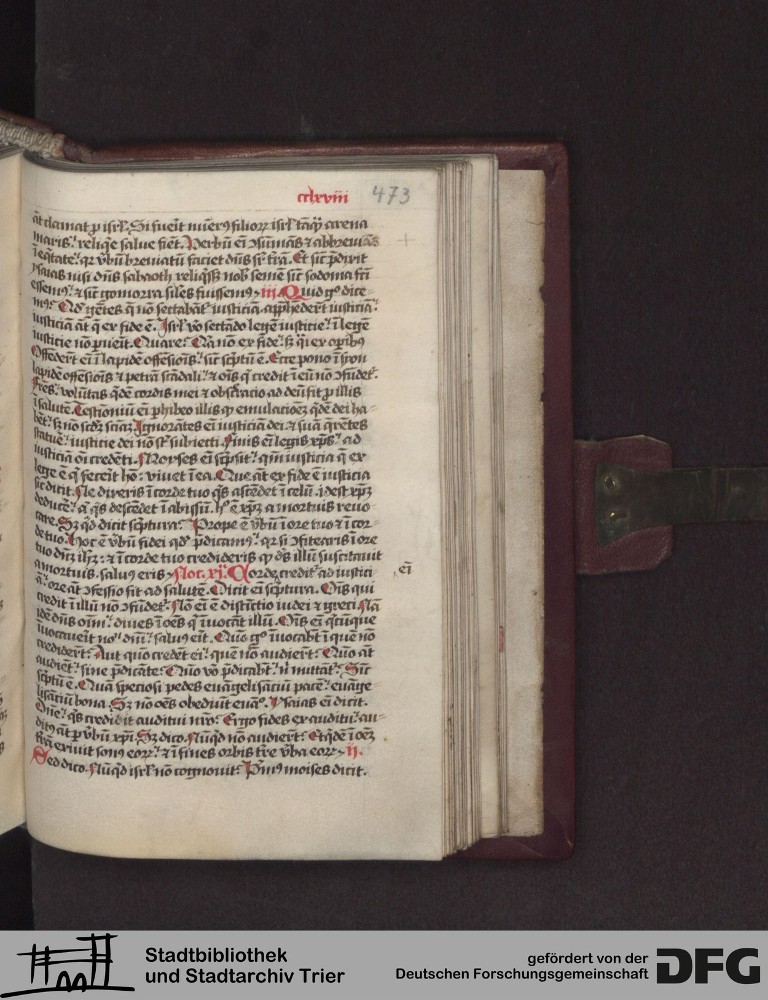 cclxviii 473
āt clamat p isrl'. Si fuerit nūerꝯ filioꝝ isrl' tāq̄ȝ arena
maris: reliqͥe salue fiēt. Verbū eī ɔsūmās ⁊ abbreviās
ī eq̄tate: qr vbū breviatū faciet dn̄s sr̄ trā. Et sic p̄dixit
ysaias nisi dn̄s sabaoth reliqͥsȝ nob̄ semē sic̄ sodoma fcī
essemꝯ: ⁊ sic̄ gomorra siles fuissemꝯ. iii. Quid gͦ dice-
mꝯ: Qd̄ gētes q̄ nō sectabāt iusticiā. apphēderūt iusticiā:
iusticiā āt q̄ ex fide ē. Isrl' vo sectādo legē iusticie: ī legē
iusticie nō puenit. Quare: Qa nō ex fide: sȝ qͥ ex opibꝯ
Offēderūt eī ī lapidē offēsiois: sic̄ sc̄ptū ē. Ecce pono ī syon
lapidē offēsiois ⁊ petrā scādali: ⁊ ois q̄ credit ī eū nō ɔfūdet.
Fr̄es: volūtas q̄dē cordis mei ⁊ obsecratio ad deū fit p illis
ī salutē. Testioniū eī phibeo illis qȝ emulatioeȝ q̄dē dei ha-
bēt: sȝ nō scdȝ sciaȝ. Ignorātes eī iusticiā dei: ⁊ suā q̄rētes
statuē: iusticie dei nō st̄ subiecti. Finis eī legis xp̄s: ad
iusticiā oī credēti. Moyses eī sc̄psit: qm̄ iusticiā q̄ ex
lege ē q̄ fecerit hō: vivet ī ea. Que āt ex fide ē iusticia
sic dicit. Ne dixeris ī corde tuo qͥs ascēdet ī celū. idest xp̄ȝ
deducē: aͭ qͥs descēdet ī abissū. hͦ ē xp̄ȝ a mortuis revo
care. Sȝ qd̄ dicit sc̄ptura: Prope ē vbū ī ore tuo ⁊ ī cor-
de tuo. Hoc ē vbū fidei qd̄ p̄dicamꝯ: qr si ɔfitearis ī ore
tuo dn̄ȝ ihȝ: ⁊ ī corde tuo credideris qȝ ds̄ illū suscitavit
a mortuis. salvꝯ eris. Nōc. xj. Corde credit ad iustici ,eī
ā: ore āt ɔfessio fit ad salutē. Dicit eī sc̄ptura. Ois qui
credit ī illū nō ɔfūdet. Nō eī ē distictio iudei ⁊ greci. Nā
idē dn̄s oim: dives ī oēs q̄ īvocāt illū. Ois eī qͥcūque
īvocaverit noͥ dn̄i: salvꝯ erit. Quō gͦ īvocabt ī quē nō
crediderūt: Aut quō credēt ei: quē nō audierūt: Quō āt
audiēt: sine p̄dicāte: Quō vo p̄dicabt: nͥ mittāt: Sic̄
sc̄ptū ē. Quā speciosi pedes evāgelisāciū pacē: evāge-
lisāciū bona. Sȝ nō oēs obediūt evāͦ. Ysaias eī dicit.
Dn̄e: qͥs credidit auditui nr̄o: Ergo fides ex auditu: au-
ditꝯ āt p vbū xp̄i. Sȝ dico. Nūqͥd nō audierūt: Et qͥdē ī oēȝ
trā exivit sonꝯ eoꝝ: ⁊ ī fines orbis tre vba eoꝝ. ij.
Sed dico. Nūqͥd isrl' nō cognovit: Pͥmꝯ moises dicit.
Stadtbibliothek
und Stadtarchiv Trier
gefördert von der
Deutschen Forschungsgemeinschaft
DFG